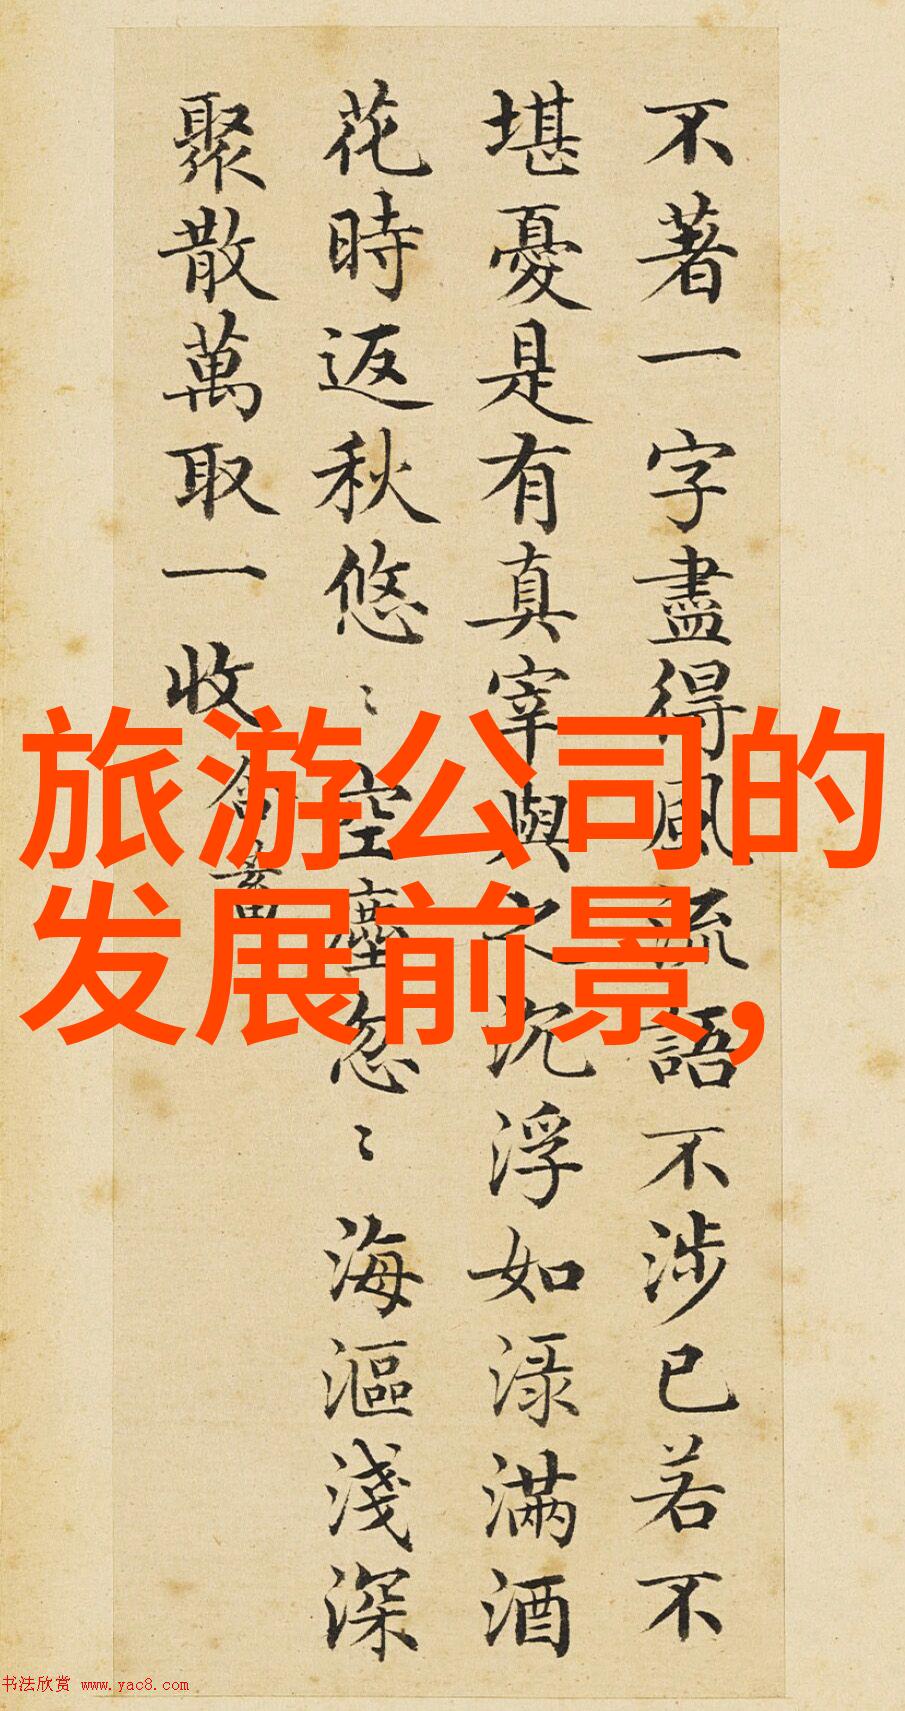 不著一字盡得風流語不涉已若不
堪憂是有真宰與之沉浮如淥滿酒
花時返秋悠〻空塵忽〻海漚淺深
聚散萬取一收
含蓄
旅游公司的
发展前景,
书法欣赏 www.yac8.com